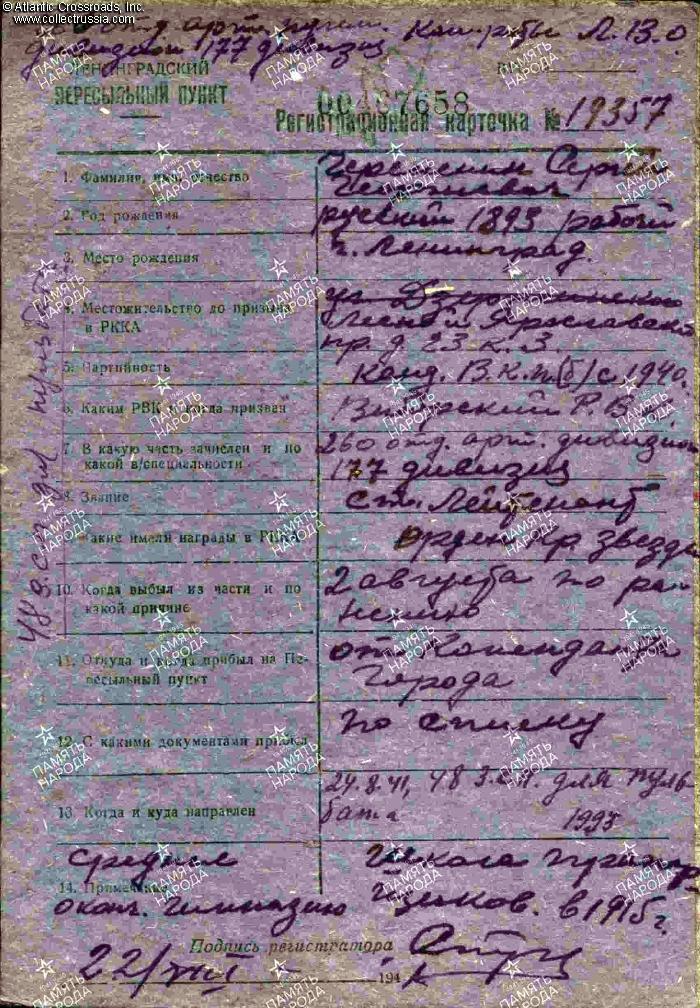 © Atlantic Crossroads, Inc.
www.collectrussia.com
арт. Л. В. О.
дивизион 177 дивизии
ЛЕНИНГРАДСКИЙ
ПЕРЕСЫЛЬНЫЙ ПУНКТ
7658
Регистрационная карточка № 19357
1. Фамилия, имя, отчество
Сергей
2. Год рождения
русский 1895 рабочий
3. Место рождения
г. Ленинград
4. Местожительство до призыва в РККА
пр. д. 23 к. 3
5. Партийность
Канд. В.К.П(б) с 1940.
6. Каким РВК и когда призван
Выборгский Р.В.К.
7. В какую часть зачислен и по какой в/специальности
260 отд. арт. дивизион
177 дивизии
8. Звание
ст. Лейтенант
9. Какие имели награды в РККА
Орден кр. звезда
10. Когда выбыл из части и по какой причине
2 августа по ра-
нению
11. Откуда и когда прибыл на Пе-
ресыльный пункт
от Коменданта
Города
12. С какими документами прибыл
по списку
13. Когда и куда направлен
24.8.41, 48 для пуль
бата
1995
14. Примечание
среднее Школа
оконч. гимназию в 1915 г.
Подпись регистратора
22/VIII 194
ПАМЯТЬ
НАРОДА